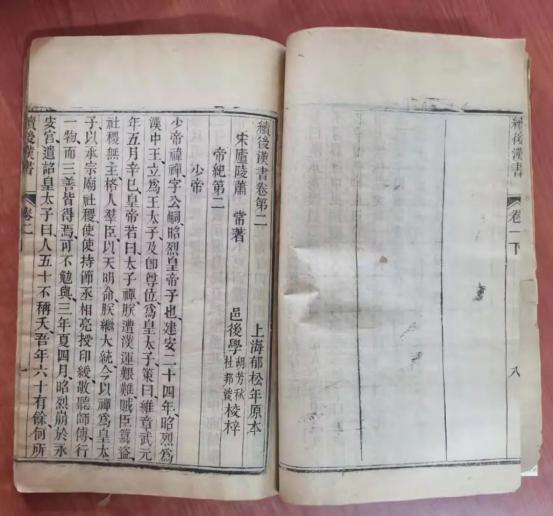 續後漢書
卷一下
八
續後漢書卷第二
上海郁松年原本
宋廬陵蕭 常著
邑後學
胡芳秋
杜邦
梓
帝紀第二
少帝
少帝諱禪字公嗣昭烈皇帝子也建安二十四年昭烈爲
漢中王立爲王太子及卽尊位爲皇太子策曰維章武元
年五月辛巳皇帝若曰太子禪朕遭漢運艱難賊臣篡盜
社稷無主格人羣臣以天明命朕繼大統今以禪爲皇太
子以承宗廟社稷使使持節丞相亮授印綬敬聽師傅行
一物而三善皆得焉可不勉與三年夏四月昭烈崩於永
安宮遺詔皇太子曰人五十不稱夭吾年六十有餘何所
續後漢書
卷二
一